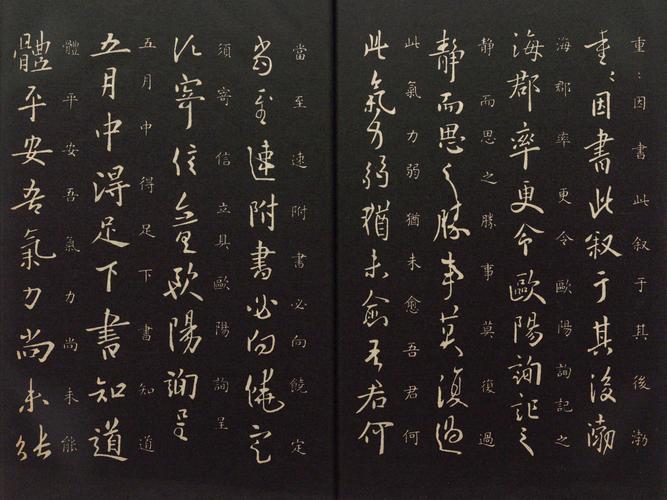 重:因書此叙于其後渤
重:因書此叙于其後渤
海郡率更令歐陽詢記之
海郡率更令歐陽詢記之
靜而思之勝事莫復過
靜而思之勝事莫復過
此氣力弱猶未愈吾君何
此氣力弱猶未愈吾君何
當至速附書必向饒定
當至速附書必向饒定
須寄信立具歐陽詢呈
須寄信立具歐陽詢呈
五月中得足下書知道
五月中得足下書知道
體平安吾氣力尚未能
體平安吾氣力尚未能